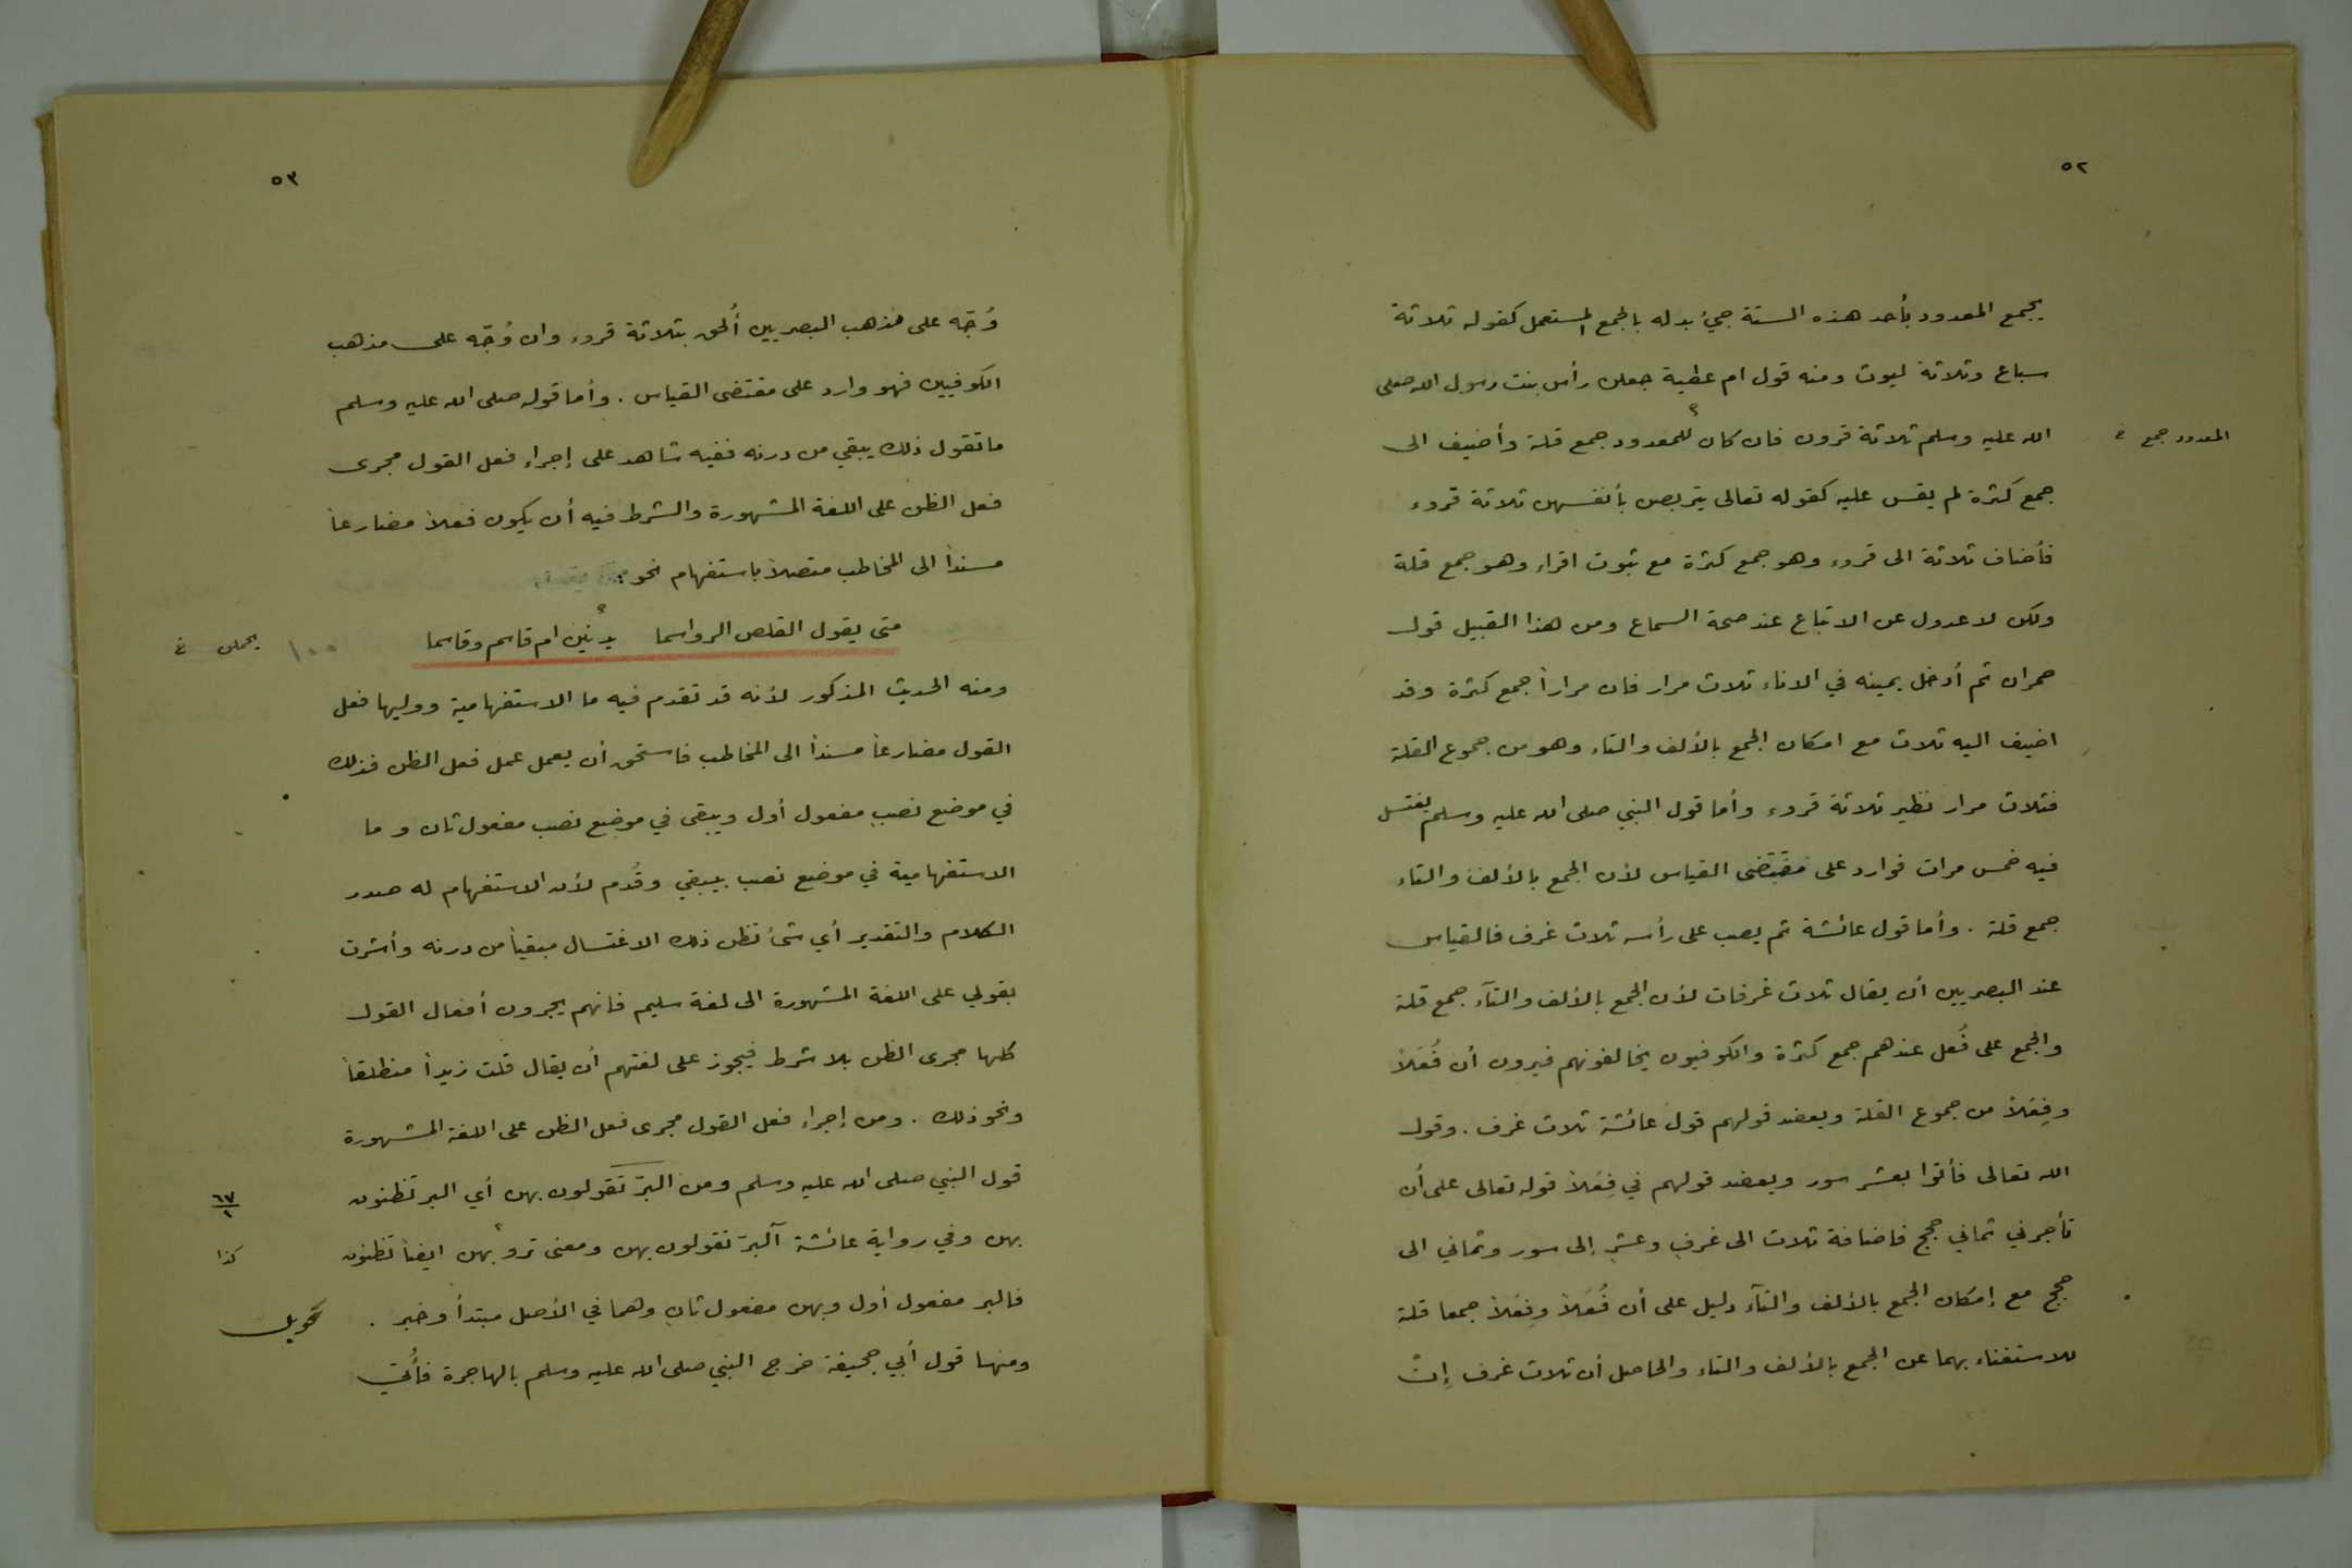 ٥٢
يجمع المعدود بأحد هذه الستة جيئ بدله بالجمع المستعمل كقوله ثلاثة
سباع وثلاثة ليوث ومنه قول ام عطية جعلن رأس بنت رسول الله صلى
الله عليه وسلم ثلاثة قرون فان كان للمعدود جمع قلة وأضيف الى
المعدود جمع خ
جمع كثرة لم يقس عليه كقوله تعالى يتربصن بأنفسهن ثلاثة قروء
فأضاف ثلاثة الى قروء وهو جمع كثرة مع ثبوت اقراء وهو جمع قلة
ولكن لا عدول عن الاتباع عند صحة السماع ومن هذا القبيل قول
حمران ثم أدخل يمينه في الاناء ثلاث مرار فان مراراً جمع كثرة وقد
اضيف اليه ثلاث مع امكان الجمع بالألف والتاء وهو من جموع القلة
فثلاث مرار نظير ثلاثة قروء وأما قول النبي صلى الله عليه وسلم يغتسل
فيه خمس مرات فوارد على مقتضى القياس لأن الجمع بالألف والتاء
جمع قلة . وأما قول عائشة ثم يصب على رأسه ثلاث غرف فالقياس
عند البصريين أن يقال ثلاث غرفات لأن الجمع بالألف والتآء جمع قلة
والجمع على فُعل عندهم جمع كثرة والكوفيون يخالفونهم فيرون أن فُعَلاً
وفِعَلاً من جموع القلة ويعضد قولهم قول عائشة ثلاث غرف . وقول
الله تعالى فأتوا بعشر سور ويعضد قولهم في فِعَلاً قوله تعالى على أن
تأجرني ثماني حجج فاضافة ثلاث الى غرف وعشر إلى سور وثماني الى
حجج مع إمكان الجمع بالألف والتآء دليل على أن فُعَلاً وفِعَلاً جمعا قلة
للاستغناء بهما عن الجمع بالألف والتاء والحاصل أن ثلاث غرف إنْ
٥٣
وُجّه على مذهب البصريين أُلحق بثلاثة قروء وان وُجّه على مذهب
الكوفيين فهو وارد على مقتضى القياس . وأما قوله صلى الله عليه وسلم
ما تقول ذلك يبقي من درنه ففيه شاهد على إجراء فعل القول مجرى
فعل الظن على اللغة المشهورة والشرط فيه أن يكون فعلاً مضارعاً
مسنداً الى المخاطب متصلاً باستفهام نحو :
متى يقول القلص الرواسما يدنين ام قاسم وقاسما
يحملن خ
١٠٠
ومنه الحديث المذكور لأنه قد تقدم فيه ما الاستفهامية ووليها فعل
القول مضارعاً مسنداً الى المخاطب فاستحق أن يعمل عمل فعل الظن فذلك
في موضع نصب مفعول أول ويبقى في موضع نصب مفعول ثان وما
الاستفهامية في موضع نصب بيبقي وقُدم لأن الاستفهام له صدر
الكلام والتقدير أي شئ تظن ذلك الاغتسال مبقياً من درنه وأشرت
بقولي على اللغة المشهورة الى لغة سليم فانهم يجرون أفعال القول
كلها مجرى الظن بلا شرط فيجوز على لغتهم أن يقال قلت زيداً منطلقاً
ونحو ذلك . ومن إجراء فعل القول مجرى فعل الظن على اللغة المشهورة
قول النبي صلى الله عليه وسلم ومن البرّ تقولون بهن أي البر تظنون
٦٧
١
بهن وفي رواية عائشة آلبرّ تقولون بهن ومعنى تروبهن ايضاً تظنون
كذا
فالبر مفعول أول وبهن مفعول ثان وهما في الأصل مبتدأ وخبر .
تحويل
ومنها قول أبي جحيفة خرج النبي صلى الله عليه وسلم بالهاجرة فأُتي